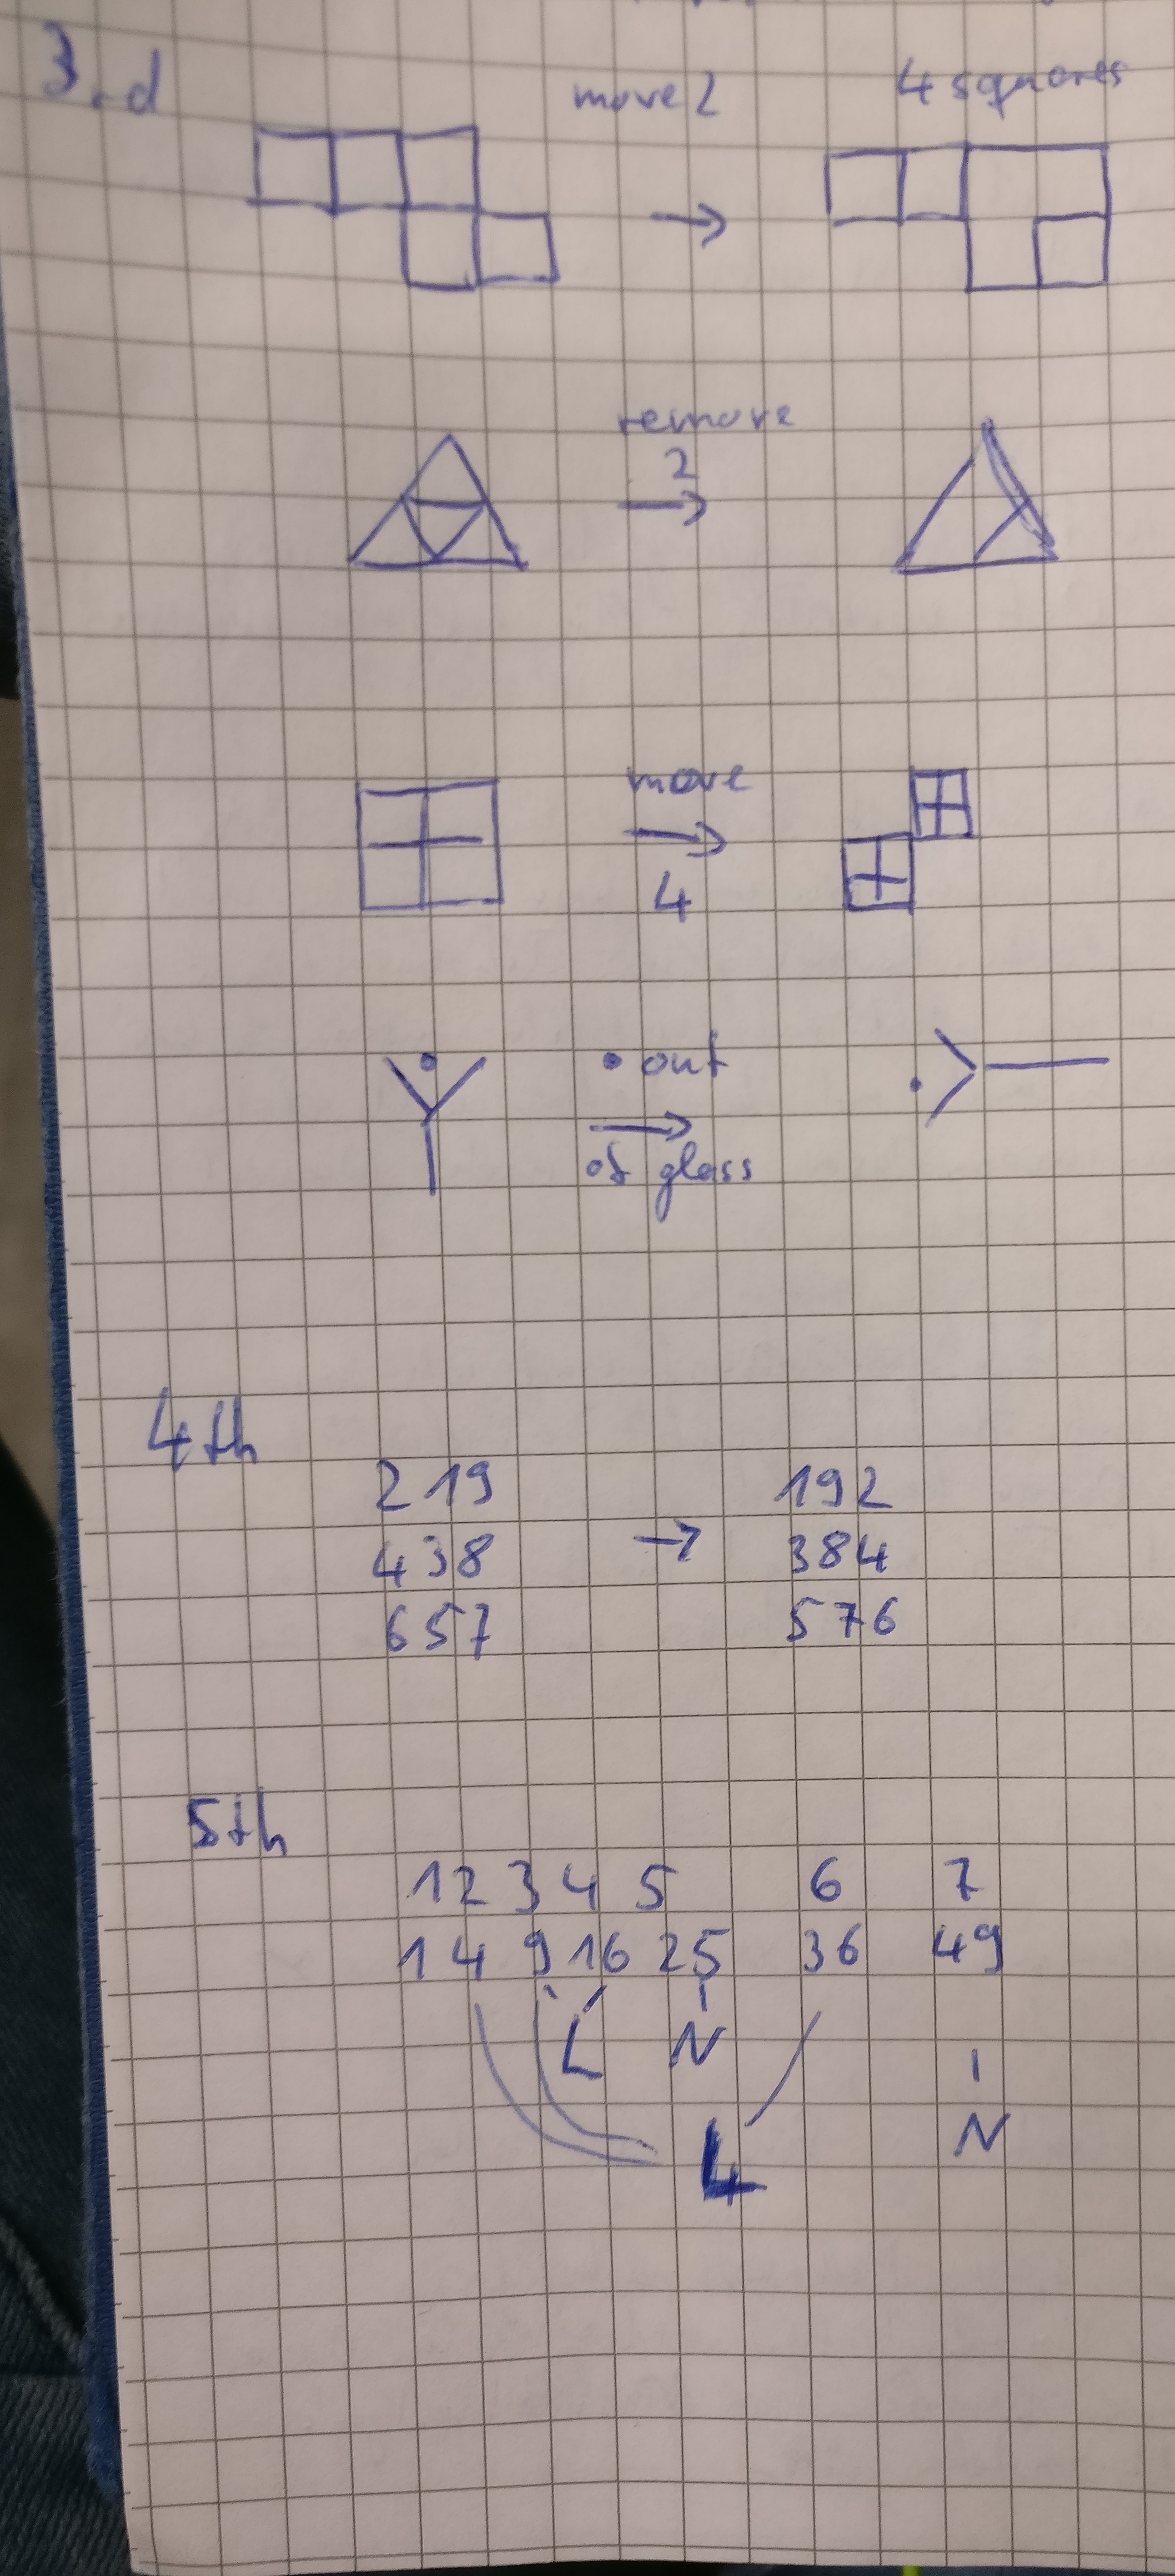 3rd
move 2 4 squares
remove
2
move
4
• out
of glass
4th
219 192
438 → 384
657 576
5th
1 2 3 4 5 6 7
1 4 9 16 25 36 49
L N
L N